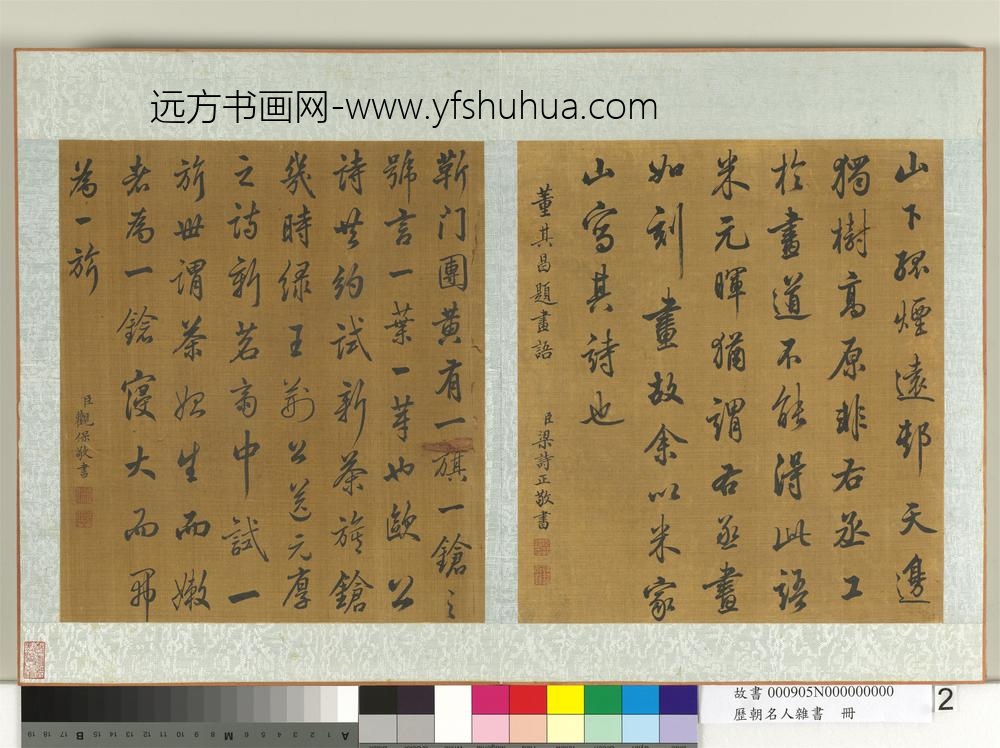 远方书画网-www.yfshuhua.com
山下孤煙遠邨天邊
獨樹高原非右丞工
於畫道不能得此語
米元暉猶謂右丞畫
如刻畫故余以米家
山寫其詩也
董其昌題畫語 臣梁詩正敬書
蘄门團黄有一旗一鎗之
號言一葉一芽也歐公
詩共約試新茶旗鎗
幾時緑王荆公送元厚
之詩新茗齋中試一
旂世謂茶始生而嫩
者為一鎗寖大而開
為一旂
臣觀保敬書
故書 000905N000000000
歷朝名人雜書 冊
2